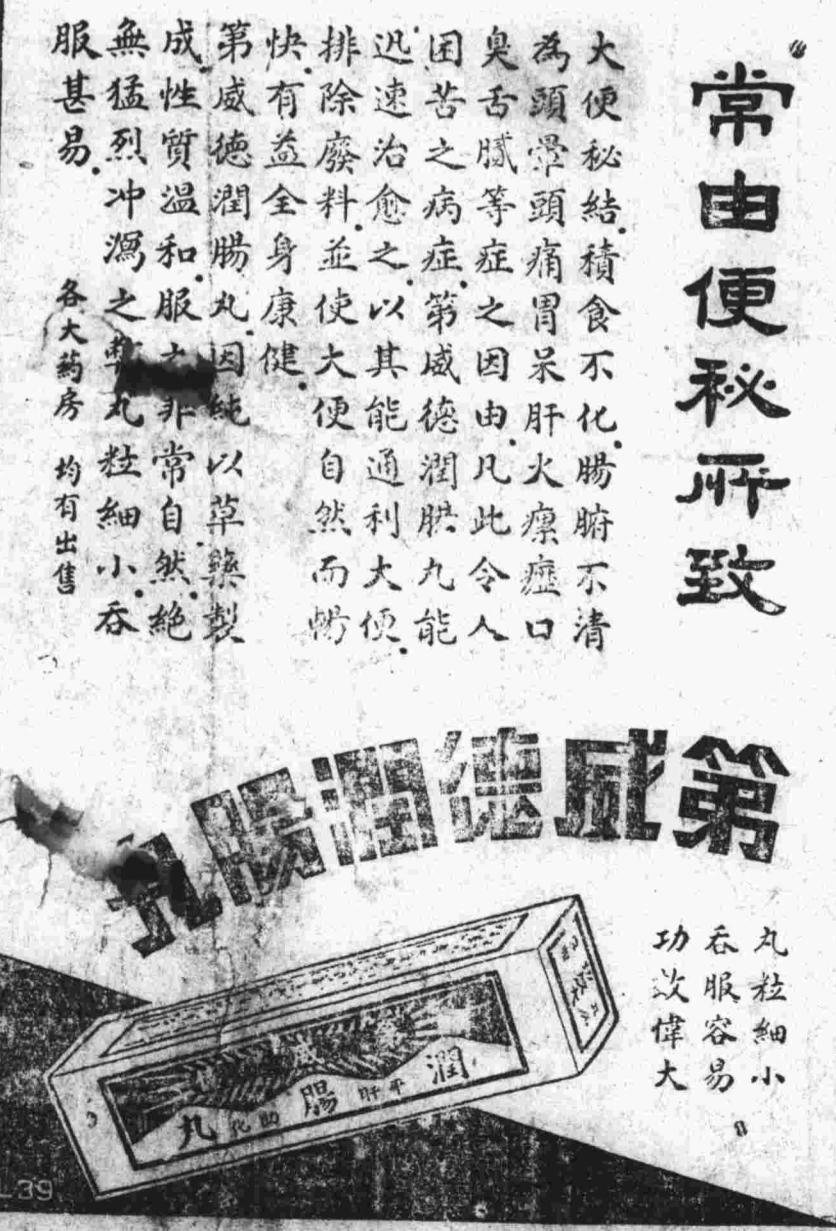 常由便秘所致
大便秘結.積食不化.腸腑不清
為頭暈頭痛胃呆肝火瘰癧口
臭舌膩等症之因由.凡此令人
困苦之病症.第威德潤腸丸能
迅速治愈之.以其能通利大便.
排除廢料.並使大便自然而暢
快.有益全身康健.
第威德潤腸丸.因純以草藥製
成.性質溫和.服之非常自然.絕
無猛烈冲瀉之弊.丸粒細小.吞
服甚易.
各大葯房 均有出售
第威德潤腸丸
丸粒細小
吞服容易
功效偉大
潤腸丸
平肝
助化
L39